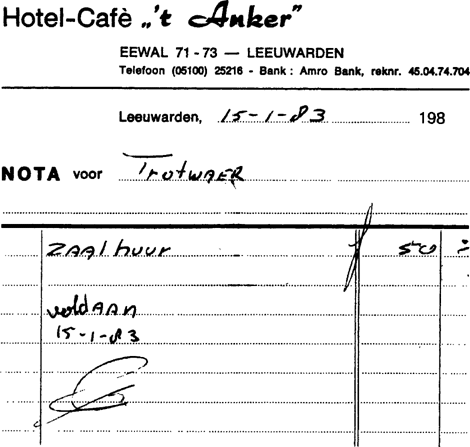 Hotel-Cafè „'t Anker”
EEWAL 71 - 73 — LEEUWARDEN
Telefoon (05100) 25216 - Bank : Amro Bank, reknr. 45.04.74.704
Leeuwarden, 15-1-83 198
NOTA voor Trotwaer
ZAALhuur 50
voldAAn
15-1-83